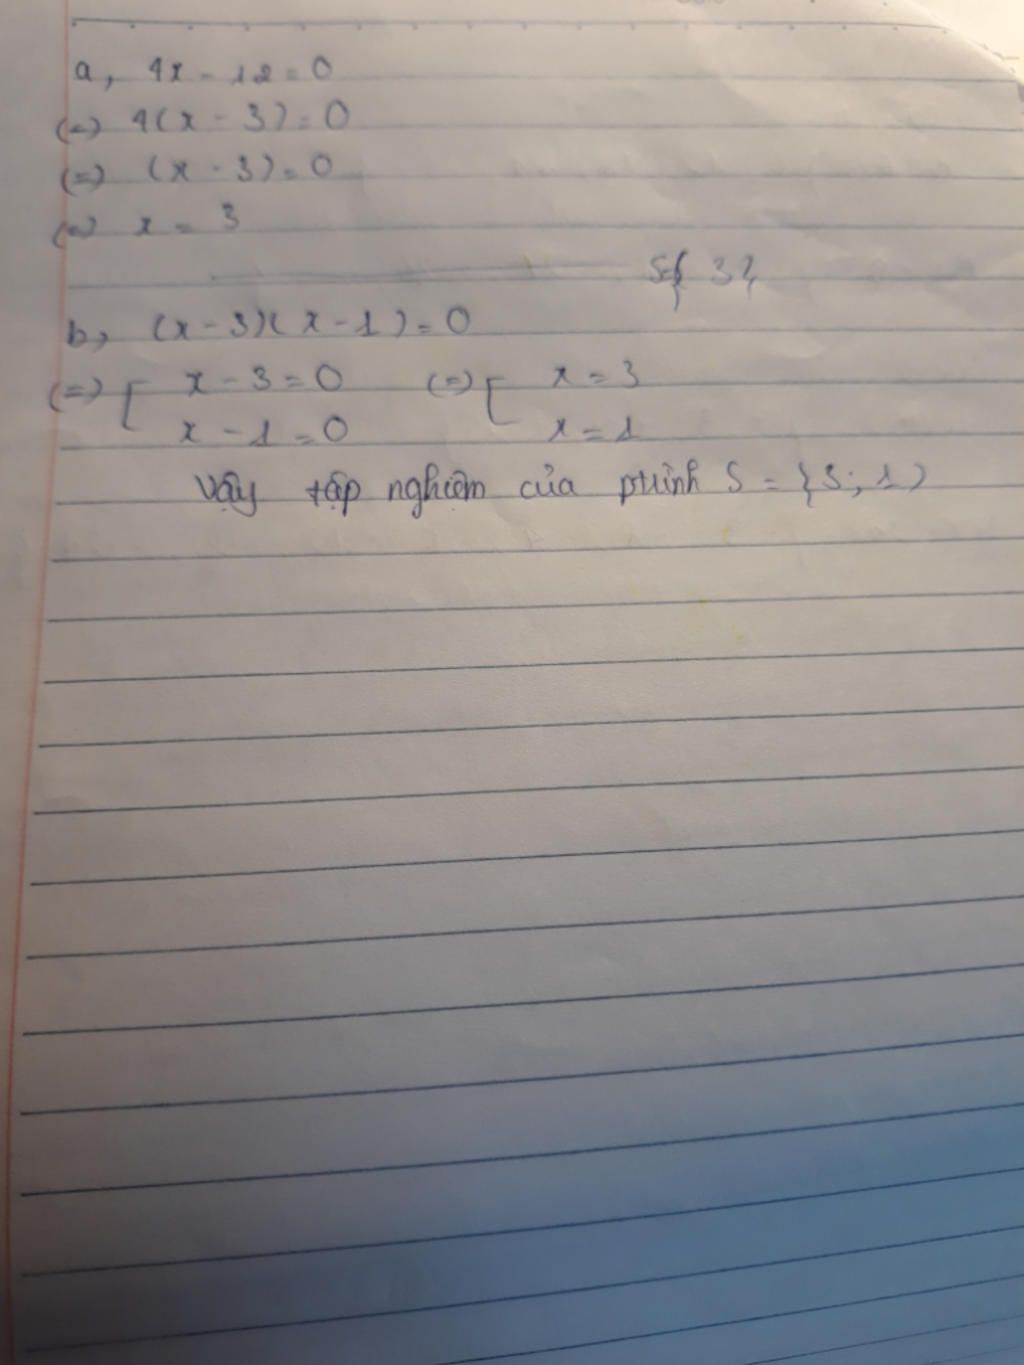 a, 4x - 12 = 0
(=) 4(x - 3) = 0
(=) (x - 3) = 0
(=) x = 3
S={ 3}
b, (x - 3)(x - 1) = 0
(=) [ x - 3 = 0 (=) [ x = 3
x - 1 = 0 x = 1
Vậy tập nghiệm của ptrình S = {3; 1}